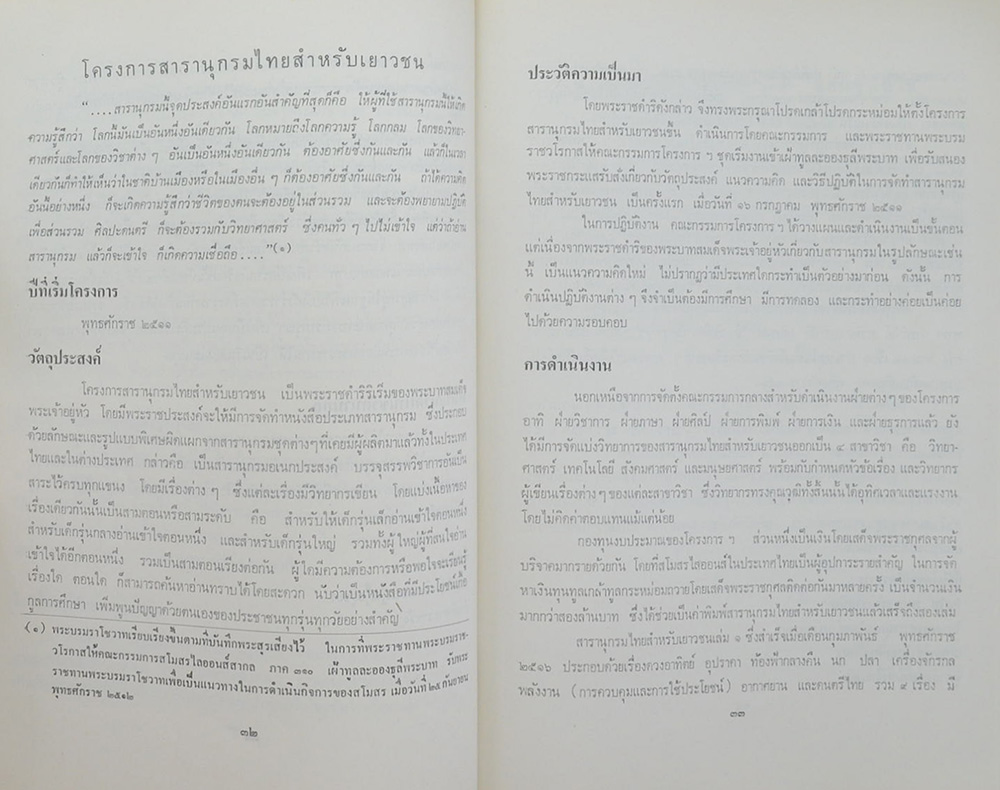 โครงการสารานุกรมไทยสำหรับเยาวชน
“....สารานุกรมนี้จุดประสงค์อันแรกอันสำคัญที่สุดก็คือ ให้ผู้ที่ใช้สารานุกรมนี้ให้เกิด
ความรู้สึกว่า โลกนี้มันเป็นอันหนึ่งอันเดียวกัน โลกหมายถึงโลกความรู้ โลกกลม โลกของวิทยา-
ศาสตร์และโลกของวิชาต่าง ๆ อันเป็นอันหนึ่งอันเดียวกัน ต้องอาศัยซึ่งกันและกัน แล้วก็ในเวลา
เดียวกันก็ทำให้เห็นว่าในชาติบ้านเมืองหรือในเมืองอื่น ๆ ก็ต้องอาศัยซึ่งกันและกัน ถ้าได้ความคิด
อันนี้อย่างหนึ่ง ก็จะเกิดความรู้สึกว่าชีวิตของคนจะต้องอยู่ในส่วนรวม และจะต้องพยายามปฏิบัติ
เพื่อส่วนรวม ศิลปะดนตรี ก็จะต้องรวมกับวิทยาศาสตร์ ซึ่งคนทั่ว ๆ ไปไม่เข้าใจ แต่ว่าถ้าอ่าน
สารานุกรม แล้วก็จะเข้าใจ ก็เกิดความเชื่อถือ....”(๑)
ปีที่เริ่มโครงการ
พุทธศักราช ๒๕๑๑
วัตถุประสงค์
โครงการสารานุกรมไทยสำหรับเยาวชน เป็นพระราชดำริริเริ่มของพระบาทสมเด็จ
พระเจ้าอยู่หัว โดยมีพระราชประสงค์จะให้มีการจัดทำหนังสือประเภทสารานุกรม ซึ่งประกอบ
ด้วยลักษณะและรูปแบบพิเศษผิดแผกจากสารานุกรมชุดต่างๆที่เคยมีผู้ผลิตมาแล้วทั้งในประเทศ
ไทยและในต่างประเทศ กล่าวคือ เป็นสารานุกรมอเนกประสงค์ บรรจุสรรพวิชาการอันเป็น
สาระไว้ครบทุกแขนง โดยมีเรื่องต่างๆ ซึ่งแต่ละเรื่องมีวิทยากรเขียน โดยแบ่งเนื้อหาของ
เรื่องเดียวกันนั้นเป็นสามตอนหรือสามระดับ คือ สำหรับให้เด็กรุ่นเล็กอ่านเข้าใจตอนหนึ่ง
สำหรับเด็กรุ่นกลางอ่านเข้าใจตอนหนึ่ง และสำหรับเด็กรุ่นใหญ่ รวมทั้งผู้ใหญ่ผู้ที่สนใจอ่าน
เข้าใจได้อีกตอนหนึ่ง รวมเป็นสามตอนเรื่องต่อกัน ผู้ใดมีความต้องการหรือพอใจจะเรียนรู้
เรื่องใด ตอนใด ก็สามารถค้นหาอ่านทราบได้โดยสะดวก นับว่าเป็นหนังสือที่มีประโยชน์เกื้อ
กูลการศึกษา เพิ่มพูนปัญญาด้วยตนเองของประชาชนทุกรุ่นทุกวัยอย่างสำคัญ
(๑) พระบรมราโชวาทเรียบเรียงขึ้นตามที่บันทึกพระสุรเสียงไว้ ในการที่พระราชทานพระบรมราช-
วโรกาสให้คณะกรรมการสโมสรไลออนส์สากล ภาค ๓๑๐ เฝ้าทูลละอองธุลีพระบาท รับพระ
ราชทานพระบรมราโชวาทเพื่อเป็นแนวทางในการดำเนินกิจการของสโมสร เมื่อวันที่ ๒๕ กันยายน
พุทธศักราช ๒๕๑๒
๓๒
ประวัติความเป็นมา
โดยพระราชดำริดังกล่าว จึงทรงพระกรุณาโปรดเกล้าโปรดกระหม่อมให้ตั้งโครงการ
สารานุกรมไทยสำหรับเยาวชนขึ้น ดำเนินการโดยคณะกรรมการ และพระราชทานพระบรม
ราชวโรกาสให้คณะกรรมการโครงการ ฯ ชุดเริ่มงานเข้าเฝ้าทูลละอองธุลีพระบาท เพื่อรับสนอง
พระราชกระแสรับสั่งเกี่ยวกับวัตถุประสงค์ แนวความคิด และวิธีปฏิบัติในการจัดทำสารานุกรม
ไทยสำหรับเยาวชน เป็นครั้งแรก เมื่อวันที่ ๑๖ กรกฎาคม พุทธศักราช ๒๕๑๑
ในการปฏิบัติงาน คณะกรรมการโครงการ ฯ ได้วางแผนและดำเนินงานเป็นขั้นตอน
แต่เนื่องจากพระราชดำริของพระบาทสมเด็จพระเจ้าอยู่หัวเกี่ยวกับสารานุกรมในรูปลักษณะเช่น
นี้ เป็นแนวความคิดใหม่ ไม่ปรากฏว่ามีประเทศใดกระทำเป็นตัวอย่างมาก่อน ดังนั้น การ
ดำเนินปฏิบัติงานต่าง ๆ จึงจำเป็นต้องมีการศึกษา มีการทดลอง และกระทำอย่างค่อยเป็นค่อย
ไปด้วยความรอบคอบ
การดำเนินงาน
นอกเหนือจากการจัดตั้งคณะกรรมการกลางสำหรับดำเนินงานฝ่ายต่างๆ ของโครงการ
อาทิ ฝ่ายวิชาการ ฝ่ายภาษา ฝ่ายศิลป์ ฝ่ายการพิมพ์ ฝ่ายการเงิน และฝ่ายธุรการแล้ว ยัง
ได้มีการจัดแบ่งวิทยาการของสารานุกรมไทยสำหรับเยาวชนออกเป็น ๔ สาขาวิชา คือ วิทยา-
ศาสตร์ เทคโนโลยี สังคมศาสตร์ และมนุษยศาสตร์ พร้อมกับกำหนดหัวข้อเรื่อง และวิทยากร
ผู้เขียนเรื่องต่างๆ ของแต่ละสาขาวิชา ซึ่งวิทยากรทรงคุณวุฒิทั้งสิ้นนั้นได้อุทิศเวลาและแรงงาน
โดยไม่คิดค่าตอบแทนแม้แต่น้อย
กองทุนงบประมาณของโครงการ ฯ ส่วนหนึ่งเป็นเงินโดยเสด็จพระราชกุศลจากผู้
บริจาคมากรายด้วยกัน โดยที่สโมสรไลออนส์ในประเทศไทยเป็นผู้อุปการะรายสำคัญ ในการจัด
หาเงินทุนทูลเกล้าทูลกระหม่อมถวายโดยเสด็จพระราชกุศลติดต่อกันมาหลายครั้ง เป็นจำนวนเงิน
มากกว่าสองล้านบาท ซึ่งได้ช่วยเป็นค่าพิมพ์สารานุกรมไทยสำหรับเยาวชนแล้วเสร็จถึงสองเล่ม
สารานุกรมไทยสำหรับเยาวชนเล่ม ๑ ซึ่งสำเร็จเมื่อเดือนกุมภาพันธ์ พุทธศักราช
๒๕๑๖ ประกอบด้วยเรื่องดวงอาทิตย์ อุปราคา ท้องฟ้ากลางคืน นก ปลา เครื่องจักรกล
พลังงาน (การควบคุมและการใช้ประโยชน์) อากาศยาน และดนตรีไทย รวม ๙ เรื่อง มี
๓๓